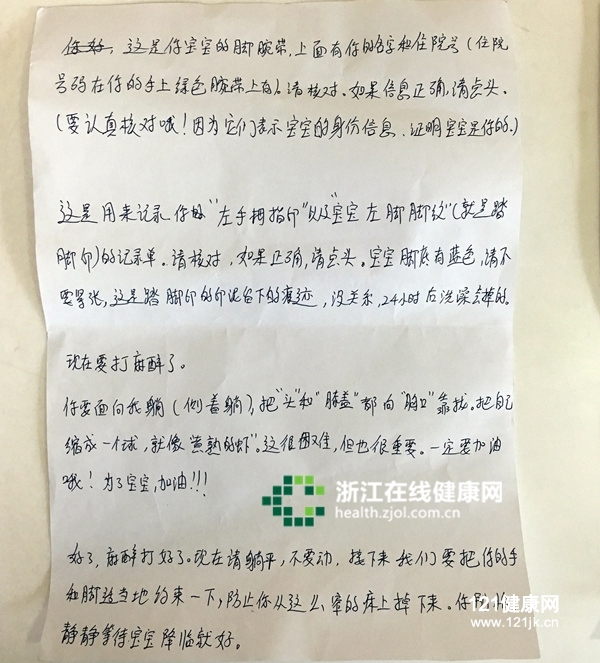 这是你宝宝的脚腕带,上面有你的名字和住院号(住院
号码在你的手上绿色腕带上有)。请核对。如果信息正确,请点头。
(要认真核对哦!因为它们表示宝宝的身份信息,证明宝宝是你的。)
这是用来记录你的"左手拇指印"以及"宝宝左脚脚纹"(就是踏
脚印)的记录单。请核对,如果正确,请点头。宝宝脚底有蓝色,请不
要紧张,这是踏脚印的印泥留下的痕迹,没关系,24小时后洗澡会掉的。
现在要打麻醉了。
你要面向我躺(侧着躺),把"头"和"膝盖"都向"胸口"靠拢。把自己
缩成一个球,就像"煮熟的虾"。这很困难,但也很重要。一定要加油
哦!为了宝宝,加油!!!
好了,麻醉打好了。现在请躺平,不要动,接下来我们要把你的手
和脚适当地约束一下,防止你从这么窄的床上掉下来。你
静静等待宝宝降临就好。
浙江在线健康网
health.zjol.com.cn
121健康网
www.121jk.cn